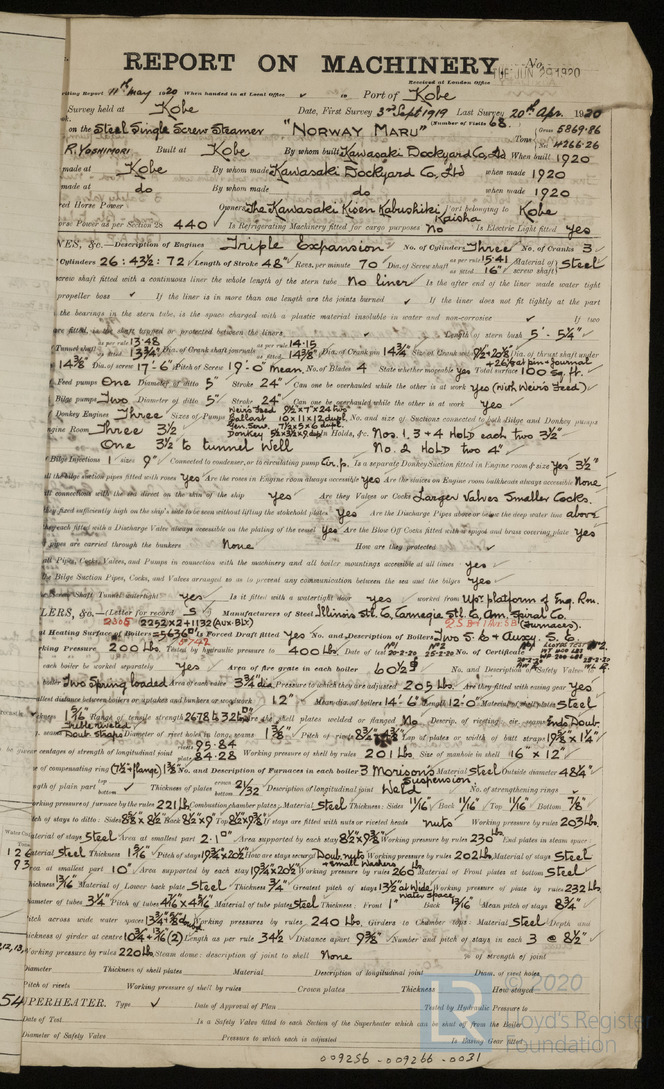 REPORT ON MACHINERY
No.
TUE. JUN. 29 1920
Received at London Office
Writing Report 11th May 1920 When handed in at Local Office Port of Kobe
Survey held at Kobe Date, First Survey 3rd Sept 1919 Last Survey 20th Apr. 1920
(Number of Visits 68
on the Steel Single Screw Steamer "NORWAY MARU" Tons Gross 5869.86 Net 4266.26
R. YOSHIMORI Built at Kobe By whom built Kawasaki Dockyard Co, Ltd When built 1920
made at Kobe By whom made Kawasaki Dockyard Co, Ltd when made 1920
made at do By whom made do when made 1920
Horse Power Owners The Kawasaki Kisen Kabushiki Kaisha Port belonging to Kobe
Horse Power as per Section 28 440 Is Refrigerating Machinery fitted for cargo purposes No Is Electric Light fitted yes
NES, &c.—Description of Engines Triple Expansion No. of Cylinders Three No. of Cranks 3
Cylinders 26: 43½: 72 Length of Stroke 48" Revs. per minute 70 Dia. of Screw shaft as per rule 15.41 as fitted 16" Material of screw shaft Steel
screw shaft fitted with a continuous liner the whole length of the stern tube No liner Is the after end of the liner made water tight
propeller boss ✓ If the liner is in more than one length are the joints burned ✓ If the liner does not fit tightly at the part
the bearings in the stern tube, is the space charged with a plastic material insoluble in water and non-corrosive ✓ If two
are fitted, is the shaft lapped or protected between the liners ✓ Length of stern bush 5'-5¼"
Tunnel shaft as per rule 13.48 as fitted 13¾" Dia. of Crank shaft journals as per rule 14.15 as fitted 14⅜" Dia. of Crank pin 14¾ Size of Crank webs 9½×20⅞ Dia. of thrust shaft under
14⅜" Dia. of screw 17'-6" Pitch of Screw 19'-0" mean. No. of Blades 4 State whether moveable yes Total surface 100 sq. ft.
Feed pumps One Diameter of ditto 5" Stroke 24" Can one be overhauled while the other is at work yes (with Weir's Feed)
Bilge pumps Two Diameter of ditto 5" Stroke 24" Can one be overhauled while the other is at work yes
Donkey Engines Three Sizes of Pumps Weirs Feed 9½×7×24 two Ballast 10×11×12 dupl. Gen. Serv. 7½×5×6 dupl. Donkey 5½×3½×9 dup. No. and size of Suctions connected to both Bilge and Donkey pumps
Engine Room Three 3½ In Holds, &c. Nos. 1, 3 + 4 Hold each two 3½"
One 3½ to tunnel well No. 2 Hold two 4"
Bilge Injections 1 sizes 9" Connected to condenser, or to circulating pump Cir. p. Is a separate Donkey Suction fitted in Engine room & size yes 3½"
all the bilge suction pipes fitted with roses yes Are the roses in Engine room always accessible yes Are the sluices on Engine room bulkheads always accessible None
all connections with the sea direct on the skin of the ship yes Are they Valves or Cocks Larger Valves Smaller Cocks.
they fixed sufficiently high on the ship's side to be seen without lifting the stokehold plates yes Are the Discharge Pipes above or below the deep water line above
they each fitted with a Discharge Valve always accessible on the plating of the vessel yes Are the Blow Off Cocks fitted with a spigot and brass covering plate yes
pipes are carried through the bunkers None How are they protected ✓
all Pipes, Cocks, Valves, and Pumps in connection with the machinery and all boiler mountings accessible at all times yes
the Bilge Suction Pipes, Cocks, and Valves arranged so as to prevent any communication between the sea and the bilges yes
the Screw Shaft Tunnel watertight yes Is it fitted with a watertight door yes worked from Upr. Platform 4 Eng. Rm.
LERS, &c.—(Letter for record S) Manufacturers of Steel Illinois Stl. Co, Carnegie Stl. Co, Am. Spiral Co. (Furnaces).
2305 2252×2+1132 (Aux. Blr) 2 S.B + 1 Aux SB
Heating Surface of Boilers 5636 5742 Is Forced Draft fitted yes No. and Description of Boilers Two S. E + Auxy. S. E.
Working Pressure 200 lbs. Tested by hydraulic pressure to 400 lbs. Date of test No. of Certificate
each boiler be worked separately yes Area of fire grate in each boiler 60½ No. and Description of Safety Valves
boiler Two Spring loaded Area of each valve 3¾ dia Pressure to which they are adjusted 205 lbs. Are they fitted with easing gear yes
smallest distance between boilers or uptakes and bunkers or woodwork 12" Mean dia. of boilers 14'-6" Length 12'-0" Material of shell plates Steel
1 5/16 Range of tensile strength 26 7/8 to 32 Are the shell plates welded or flanged No Descrip. of riveting: cir. seams Ends Doub.
Treble riveted Doub. Straps Diameter of rivet holes in long. seams 1⅜" Pitch of rivets Lap of plates or width of butt straps 19⅞ × 1¼"
percentages of strength of longitudinal joint 95.84 84.28 Working pressure of shell by rules 201 lbs. Size of manhole in shell 16" × 12"
of compensating ring (7½ + flange) 1⅜ No. and Description of Furnaces in each boiler 3 Morison's Suspension. Material Steel Outside diameter 48¼"
Length of plain part ✓ Thickness of plates 21/32 Description of longitudinal joint Weld No. of strengthening rings ✓
Working pressure of furnace by the rules 221 lbs Combustion chamber plates: Material Steel Thickness: Sides 11/16 Back 11/16 Top 11/16 Bottom ⅞"
Pitch of stays to ditto: Sides 8⅞ × 8½ Back 8½ × 9 Top 8½ × 9⅜ If stays are fitted with nuts or riveted heads nuts Working pressure by rules 203 lbs.
Material of stays Steel Area at smallest part 2.10" Area supported by each stay 8½ × 9⅜" Working pressure by rules 230 lbs End plates in steam space:
Material Steel Thickness 1 5/16 Pitch of stays 19¾ × 20½ How are stays secured Doub. nuts + small washers Working pressure by rules 202 lbs. Material of stays Steel
Area at smallest part 10" Area supported by each stay 19¾ × 20½ Working pressure by rules 260 Material of Front plates at bottom Steel
Thickness 13/16 Material of Lower back plate Steel Thickness ¾" Greatest pitch of stays 13½ at wide water space Working pressure of plate by rules 232 lbs
Diameter of tubes 3¼" Pitch of tubes 4⅞ × 4 5/8 Material of tube plates Steel Thickness: Front 1" Back 13/16 Mean pitch of stays 8¾"
Pitch across wide water spaces 13¾ Working pressures by rules 240 lbs. Girders to Chamber tops: Material Steel Depth and
thickness of girder at centre 10¾ + 13/16 (2) Length as per rule 34½ Distance apart 9⅜" Number and pitch of stays in each 3 @ 8½"
Working pressure by rules 220 lbs. Steam dome: description of joint to shell None % of strength of joint
Diameter Thickness of shell plates Material Description of longitudinal joint Diam. of rivet holes
Pitch of rivets Working pressure of shell by rules Crown plates Thickness How stayed
SUPERHEATER. Type ✓ Date of Approval of Plan Tested by Hydraulic Pressure to
Date of Test Is a Safety Valve fitted to each Section of the Superheater which can be shut off from the Boiler
Diameter of Safety Valve Pressure to which each is adjusted Is Easing Gear fitted
© 2020
Lloyd's Register
Foundation
009256 - 009266 - 0031